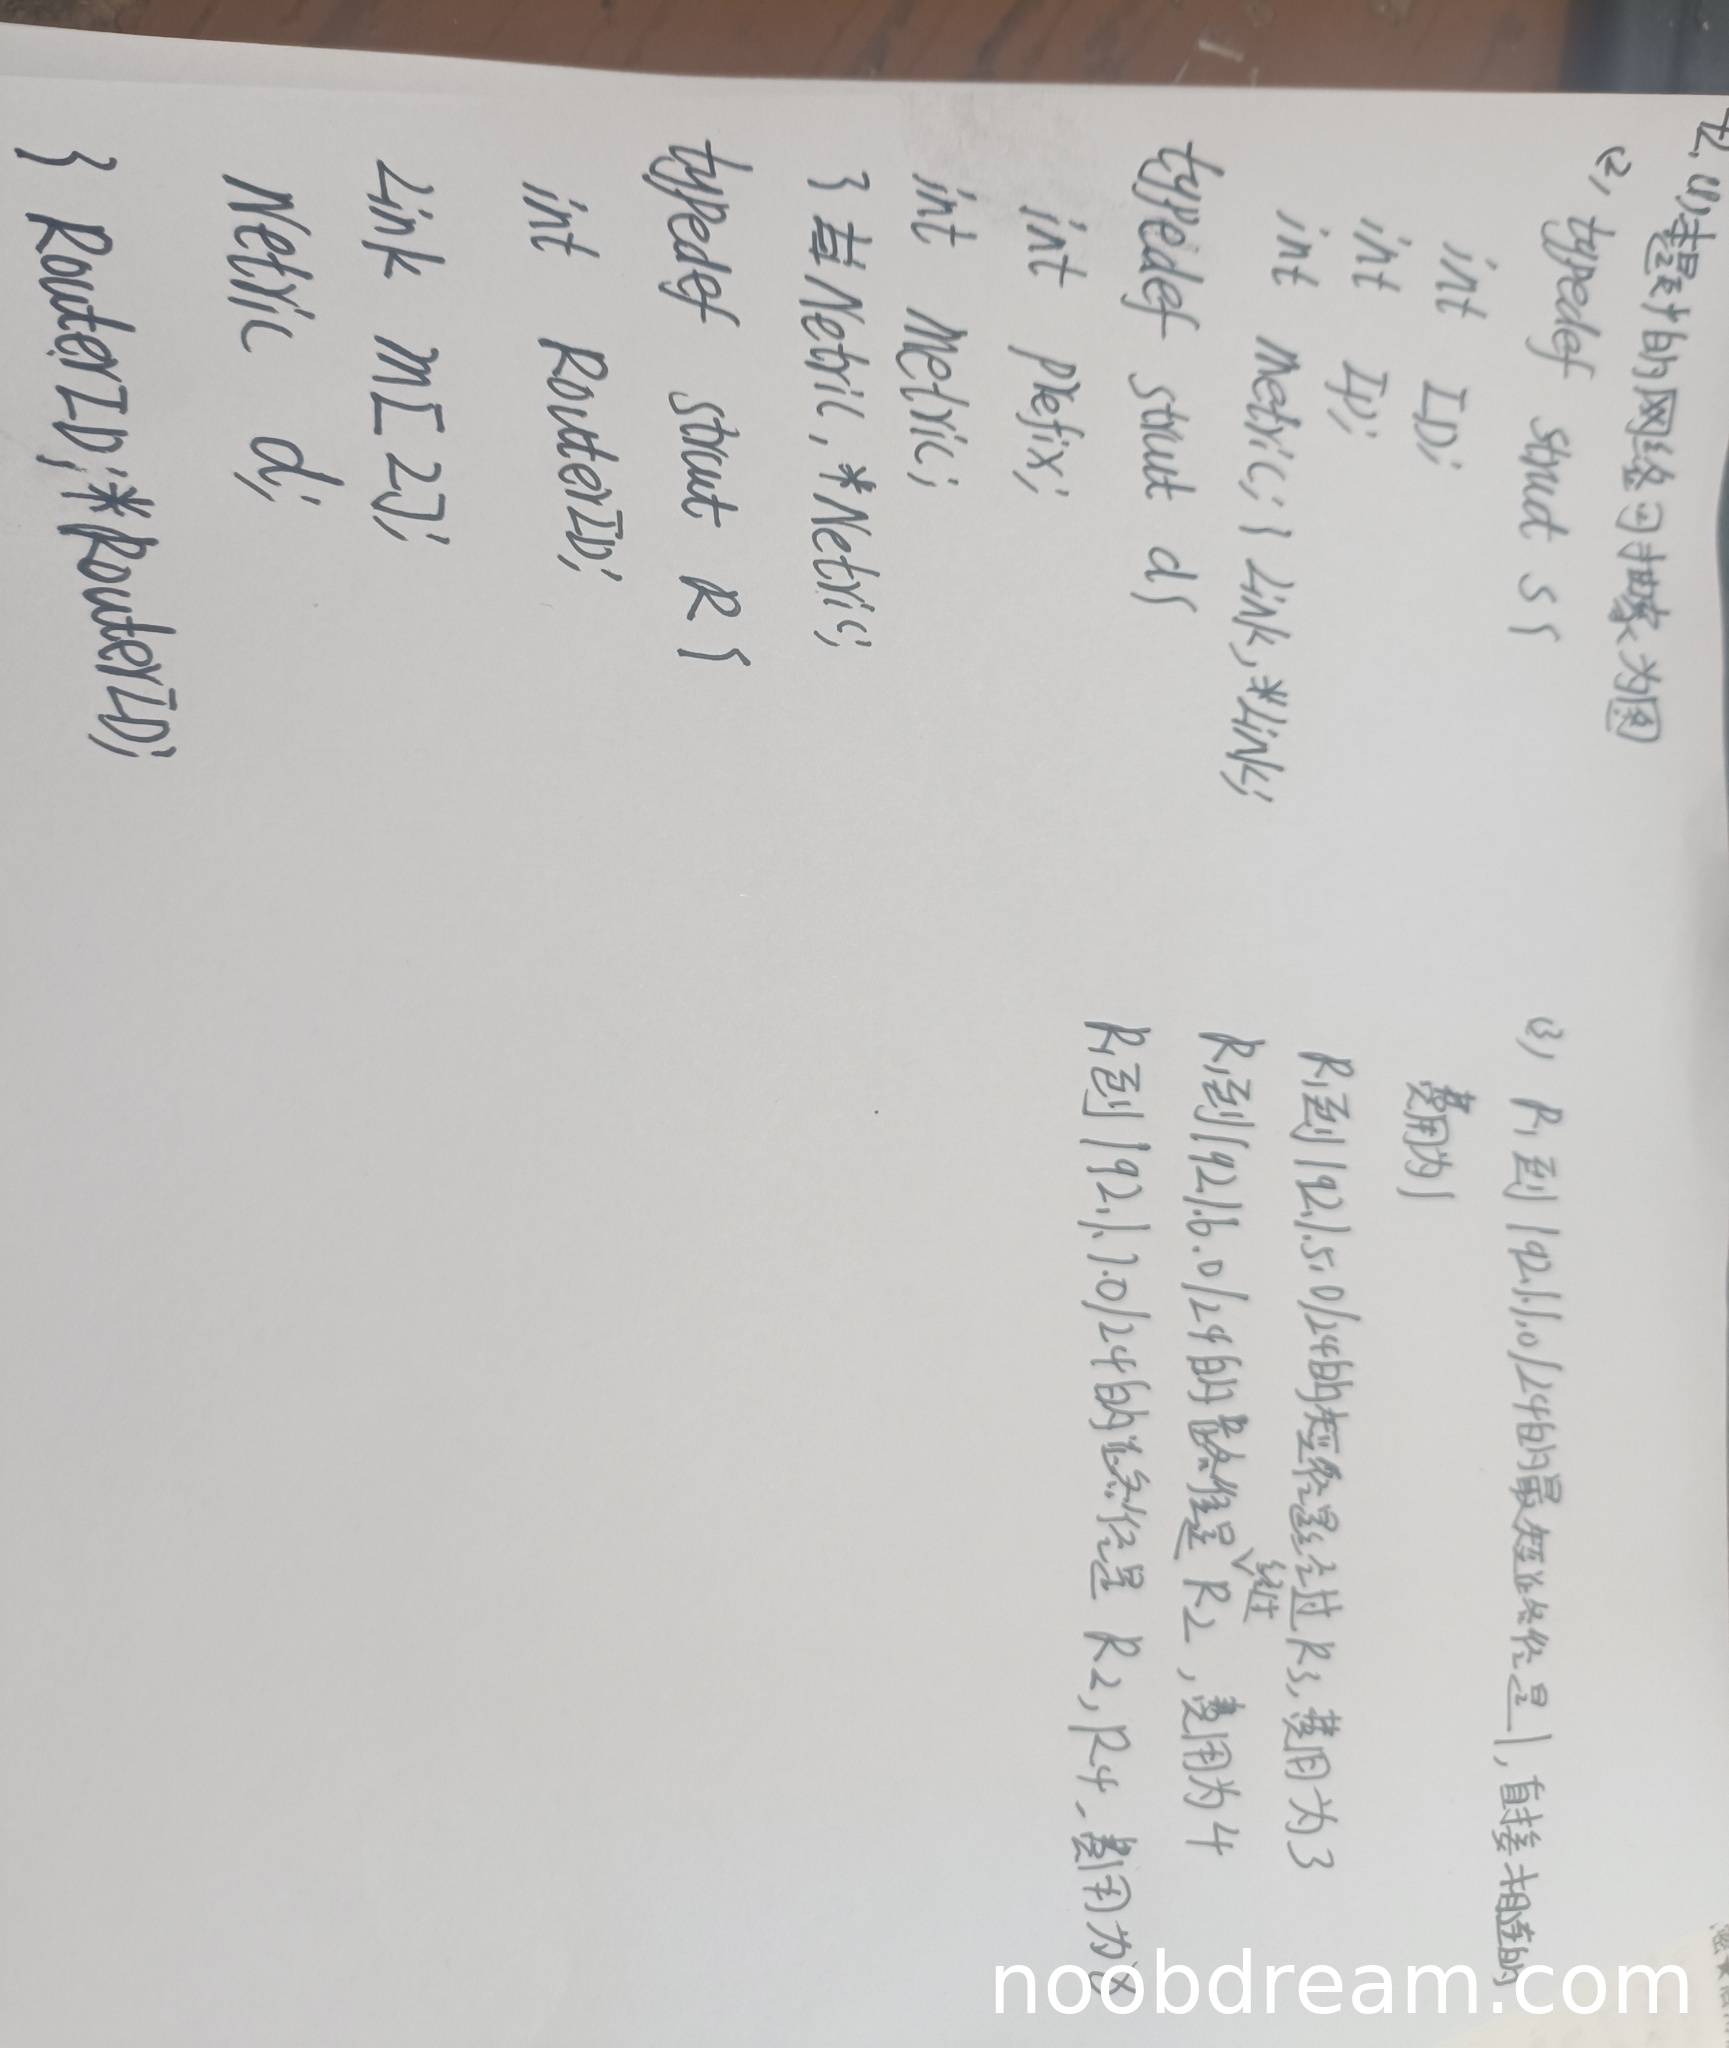 42.(1)题中的网络可抽象为图
(2), typedef strut s{
int ID;
int IP;
int metric; } Link,*Link;
typedef strut d{
int prefix;
int Metric;
} Netric, *Netric;
typedef strut R{
int RouterID;
Link m[2];
Netric d;
} RouterID;*RouterID;
(3), R1到192.1.1.0/24的最短路径是1,直接相连的
费用为1
R1到192.1.5.0/24的短径是经过R3,费用为3
R1到192.1.6.0/24的路径是经过R2,费用为4
R1到192.1.7.0/24的路径是R2,R4,费用为8
noobdream.com